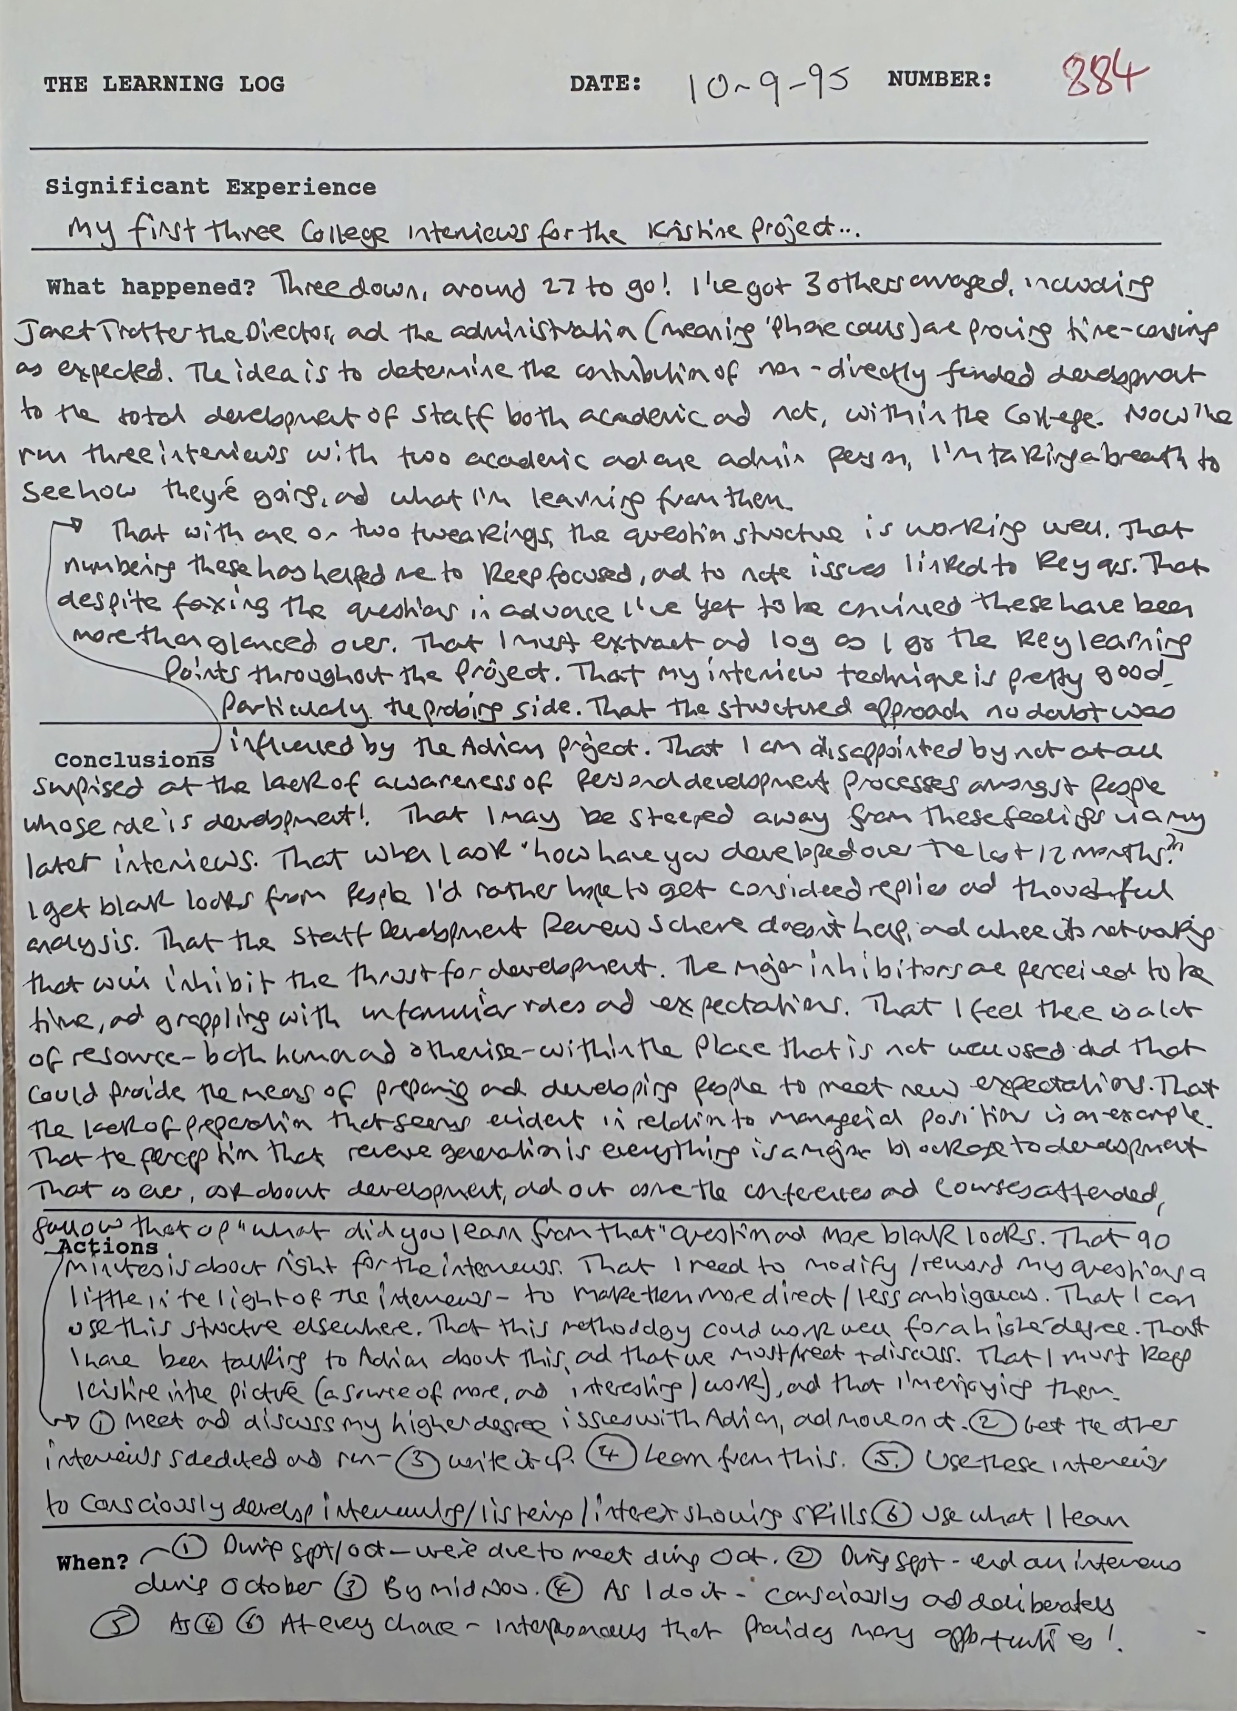 THE LEARNING LOG DATE: 10-9-95 NUMBER: 884
Significant Experience
My first three College interviews for the Kristine project...
What happened? Three down, around 27 to go! I've got 3 others arranged, including
Janet Trotter the Director, and the administration (meaning 'phone calls) are proving time-consuming
as expected. The idea is to determine the contribution of non-directly funded development
to the total development of staff both academic and not, within the College. Now I've
run three interviews with two academic and one admin person, I'm taking a breath to
see how they're going, and what I'm learning from them.
That with one or two tweakings, the question structure is working well. That
numbering these has helped me to keep focused, and to note issues linked to key qs. That
despite faxing the questions in advance I've yet to be convinced these have been
more than glanced over. That I must extract and log as I go the key learning
points throughout the project. That my interview technique is pretty good,
particularly the probing side. That the structured approach no doubt was
Conclusions influenced by the Adrian project. That I am disappointed by not at all
surprised at the lack of awareness of personal development processes amongst people
whose role is development! That I may be steered away from these feelings via my
later interviews. That when I ask "how have you developed over the last 12 months?"
I get blank looks from people I'd rather hope to get considered replies and thoughtful
analysis. That the Staff Development Review Scheme doesn't help, and where it's not working
that will inhibit the thrust for development. The major inhibitors are perceived to be
time, and grappling with unfamiliar roles and expectations. That I feel there is a lot
of resource - both human and otherwise - within the place that is not well used and that
could provide the means of preparing and developing people to meet new expectations. That
the lack of preparation that seems evident in relation to managerial positions is an example.
That the perception that revenue generation is everything is a major blockage to development
That as ever, ask about development, and out come the conferences and courses attended,
follow that up "what did you learn from that" question and more blank looks. That 90
Actions minutes is about right for the interviews. That I need to modify/reword my questions a
little in the light of the interviews - to make them more direct/less ambiguous. That I can
use this structure elsewhere. That this methodology could work well for a higher degree. That
I have been talking to Adrian about this, and that we must meet + discuss. That I must keep
Kristine in the picture (a source of more, and interesting, work), and that I'm enjoying them.
① Meet and discuss my higher degree issues with Adrian, and move on it. ② Get the other
interviews scheduled and run - ③ Write it up. ④ Learn from this. ⑤ Use these interviews
to consciously develop interviewing/listening/interest showing skills ⑥ Use what I learn
When? ① During Sept/Oct - we're due to meet during Oct. ② During Sept - end all interviews
during October ③ By mid Nov. ④ As I do it - consciously and deliberately
⑤ As ④ ⑥ At every chance - that provides many opportunities!